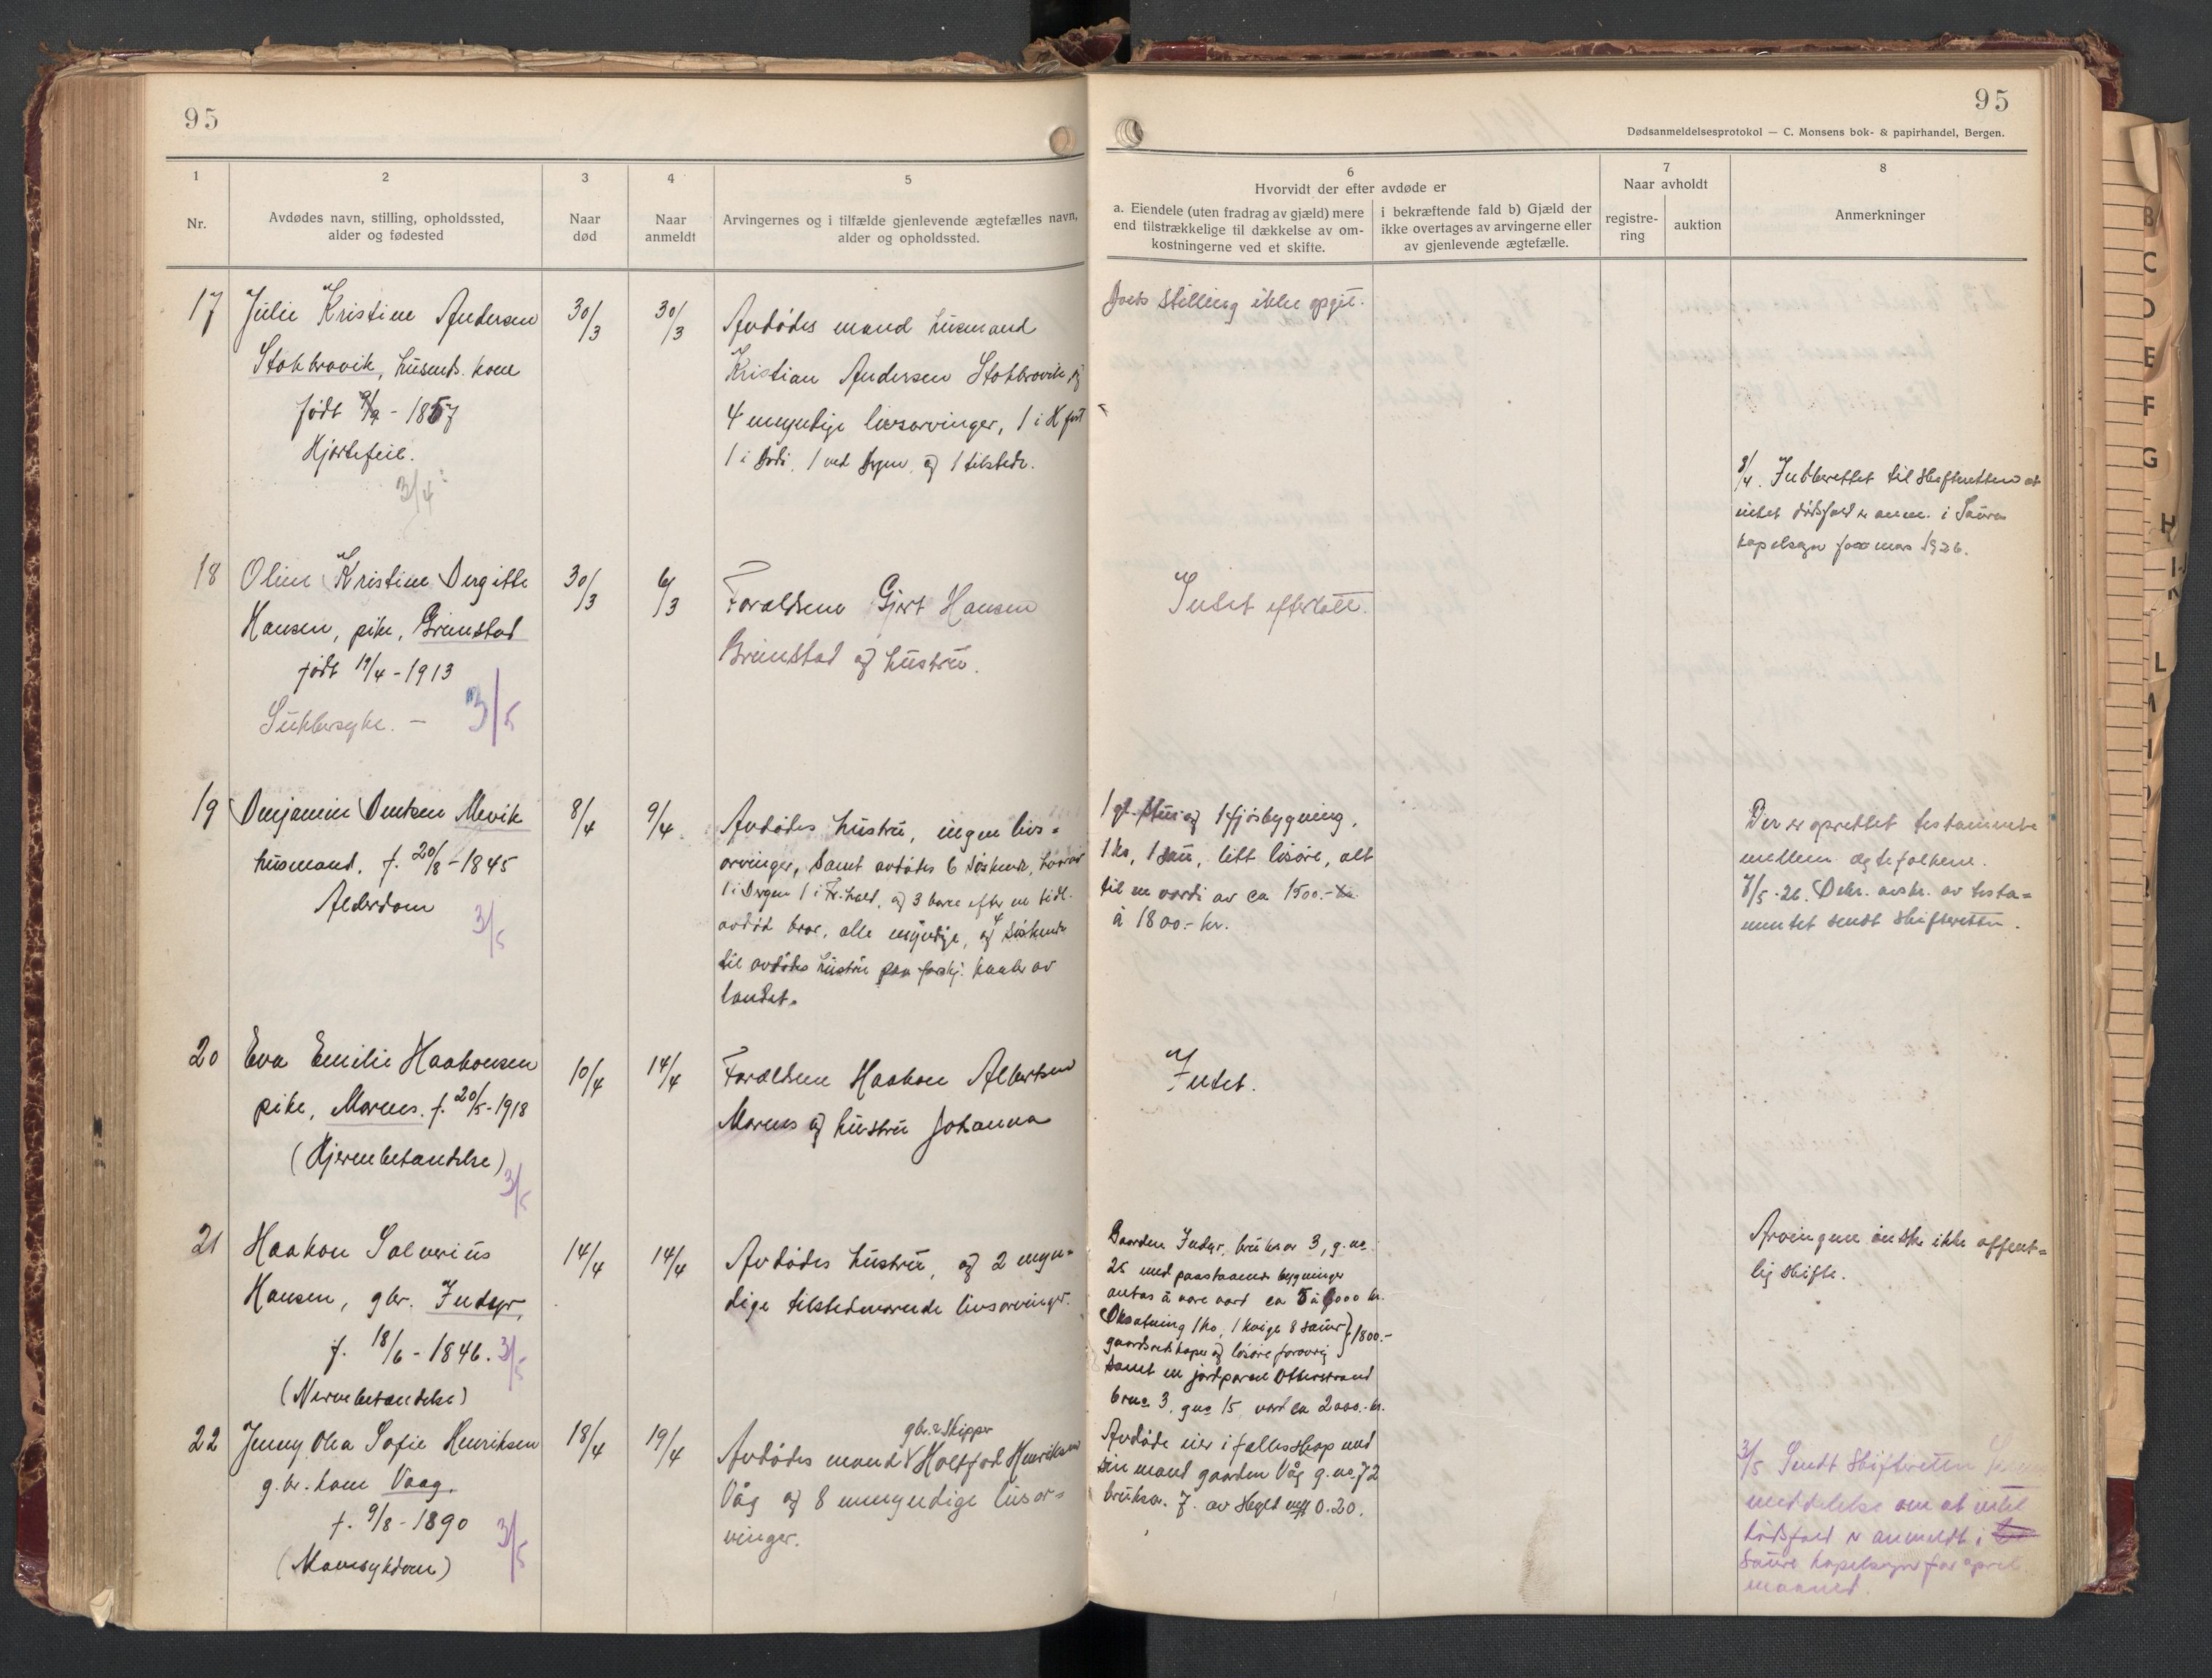 95
95
Dødsanmeldelsesprotokol — C. Monsens bok- & papirhandel, Bergen.
1
Nr.
2
Avdødes navn, stilling, opholdssted,
alder og fødested
3
Naar
død
4
Naar
anmeldt
5
Arvingernes og i tilfælde gjenlevende ægtefælles navn,
alder og opholdssted.
6
Hvorvidt der efter avdøde er
a. Eiendele (uten fradrag av gjæld) mere
end tilstrækkelige til dækkelse av om-
kostningerne ved et skifte.
i bekræftende fald b) Gjæld der
ikke overtages av arvingerne eller
av gjenlevende ægtefælle.
7
Naar avholdt
registre-
ring
auktion
8
Anmerkninger
17
Julie Kristine Andersen
Stokbrovik, husmds. kone
født 9/9 - 1857
Hjertefeil.
3/4
30/3
30/3
Avdødes mand husmand
Kristian Andersen Stokbrovik, og
4 myndige livsarvinger,
1 i Bodø, 1 ved Bergen, og 1 tilstede.
Boets stilling ikke opgit.
9/4. Indberettet til skifteretten at
intet dødsfald er anm. i Saura
kapelsogn for mars 1926.
18
Oline Kristine Bergitte
Hansen, pike, Grimstad
født 19/4 - 1913
Sukkersyke. —
3/5
30/3
6/3
Forældrene Gjert Hansen
Grimstad og hustru.
Intet efterlatt.
19
Benjamin Bentsen Mevik
husmand. f. 20/8 - 1845
Alderdom
3/5
8/4
9/4.
Avdødes hustru, ingen livs=
arvinger, samt avdødes 6 søskende, hvorav
1 i Bergen 1 i Fr.hald, og 3 barn efter en tidl.
avdød bror, alle myndige, og søskende
til avdødes hustru paa forskj. kanter av
landet.
1 gl. stue og 1 fjøsbygning,
1 ko, 1 sau, litt løsøre, alt
til en værdi av ca 1500.- kr.
à 1800.- kr.
Der er oprettet testamente
mellem ægtefolkene.
7/5 - 26. Bekr. avskr. av testa=
mentet sendt skifteretten.
20
Eva Emilie Haakonsen
pike, Mornes. f. 20/5 - 1918
(Hjernebetændelse)
3/5
10/4
14/4
Forældrene Haakon Albertsen
Mornes og hustru Johanna
Intet.
21
Haakon Salverius
Hansen, gbr. Indyr,
f. 18/6 - 1846.
3/5
(Nervebetændelse)
14/4
14/4
Avdødes hustru, og 2 myn=
dige tilstedeværende livsarvinger.
Gaarden Indyr, bruksnr 3, g.no.
25 med paastaaende bygninger
antas å være værd ca 5 à 6000 kr.
Besætning 1 ko, 1 kvige 8 sauer
gaardsredskaper og løsøre forøvrig } 1800.-
samt en jordparsel Otterstrand
brno. 3, gno 15, værd ca 2000.- kr.
Arvingene ønske ikke offent=
lig skifte.
22
Jenny Olea Sofie Henriksen
g.br. kone Vaag.
f. 9/8 - 1890
3/5
(Mavesykdom)
18/4
19/4
gbr. & skipper
Avdødes mand Holtfod Henriksen
Våg og 8 umyndige livsar=
vinger.
Avdøde eier i fællesskap med
sin mand gaarden Våg g.no. 72
bruksnr. 7. av skyld mk 0.20.
3/5 Sendt skifteretten
meddelelse om at intet
dødsfald er anmeldt i
Saura kapelsogn for april
maaned.
B
C
D
E
F
G
H
I-J
K
L